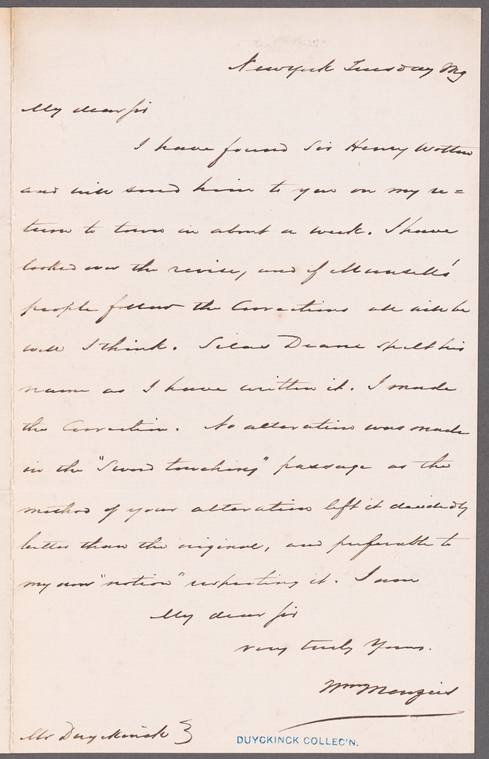 New york Tuesday Mg
My dear Sir
I have found Sir Henry Wotton
and will send him to you on my re=
turn to town in about a week. I have
looked over the revise, and if Munsell's
people follow the Corrections all will be
well I think. Silas Deane spelt his
name as I have written it. I made
the Correction. No alteration was made
in the "Sword touching" passage as the
method of your alteration left it decidedly
better than the original, and preferable to
my own "notion" respecting it. I am
My dear Sir
very truly Yours.
Wm Menzies
Mr Duyckinck
DUYCKINCK COLLEC'N.